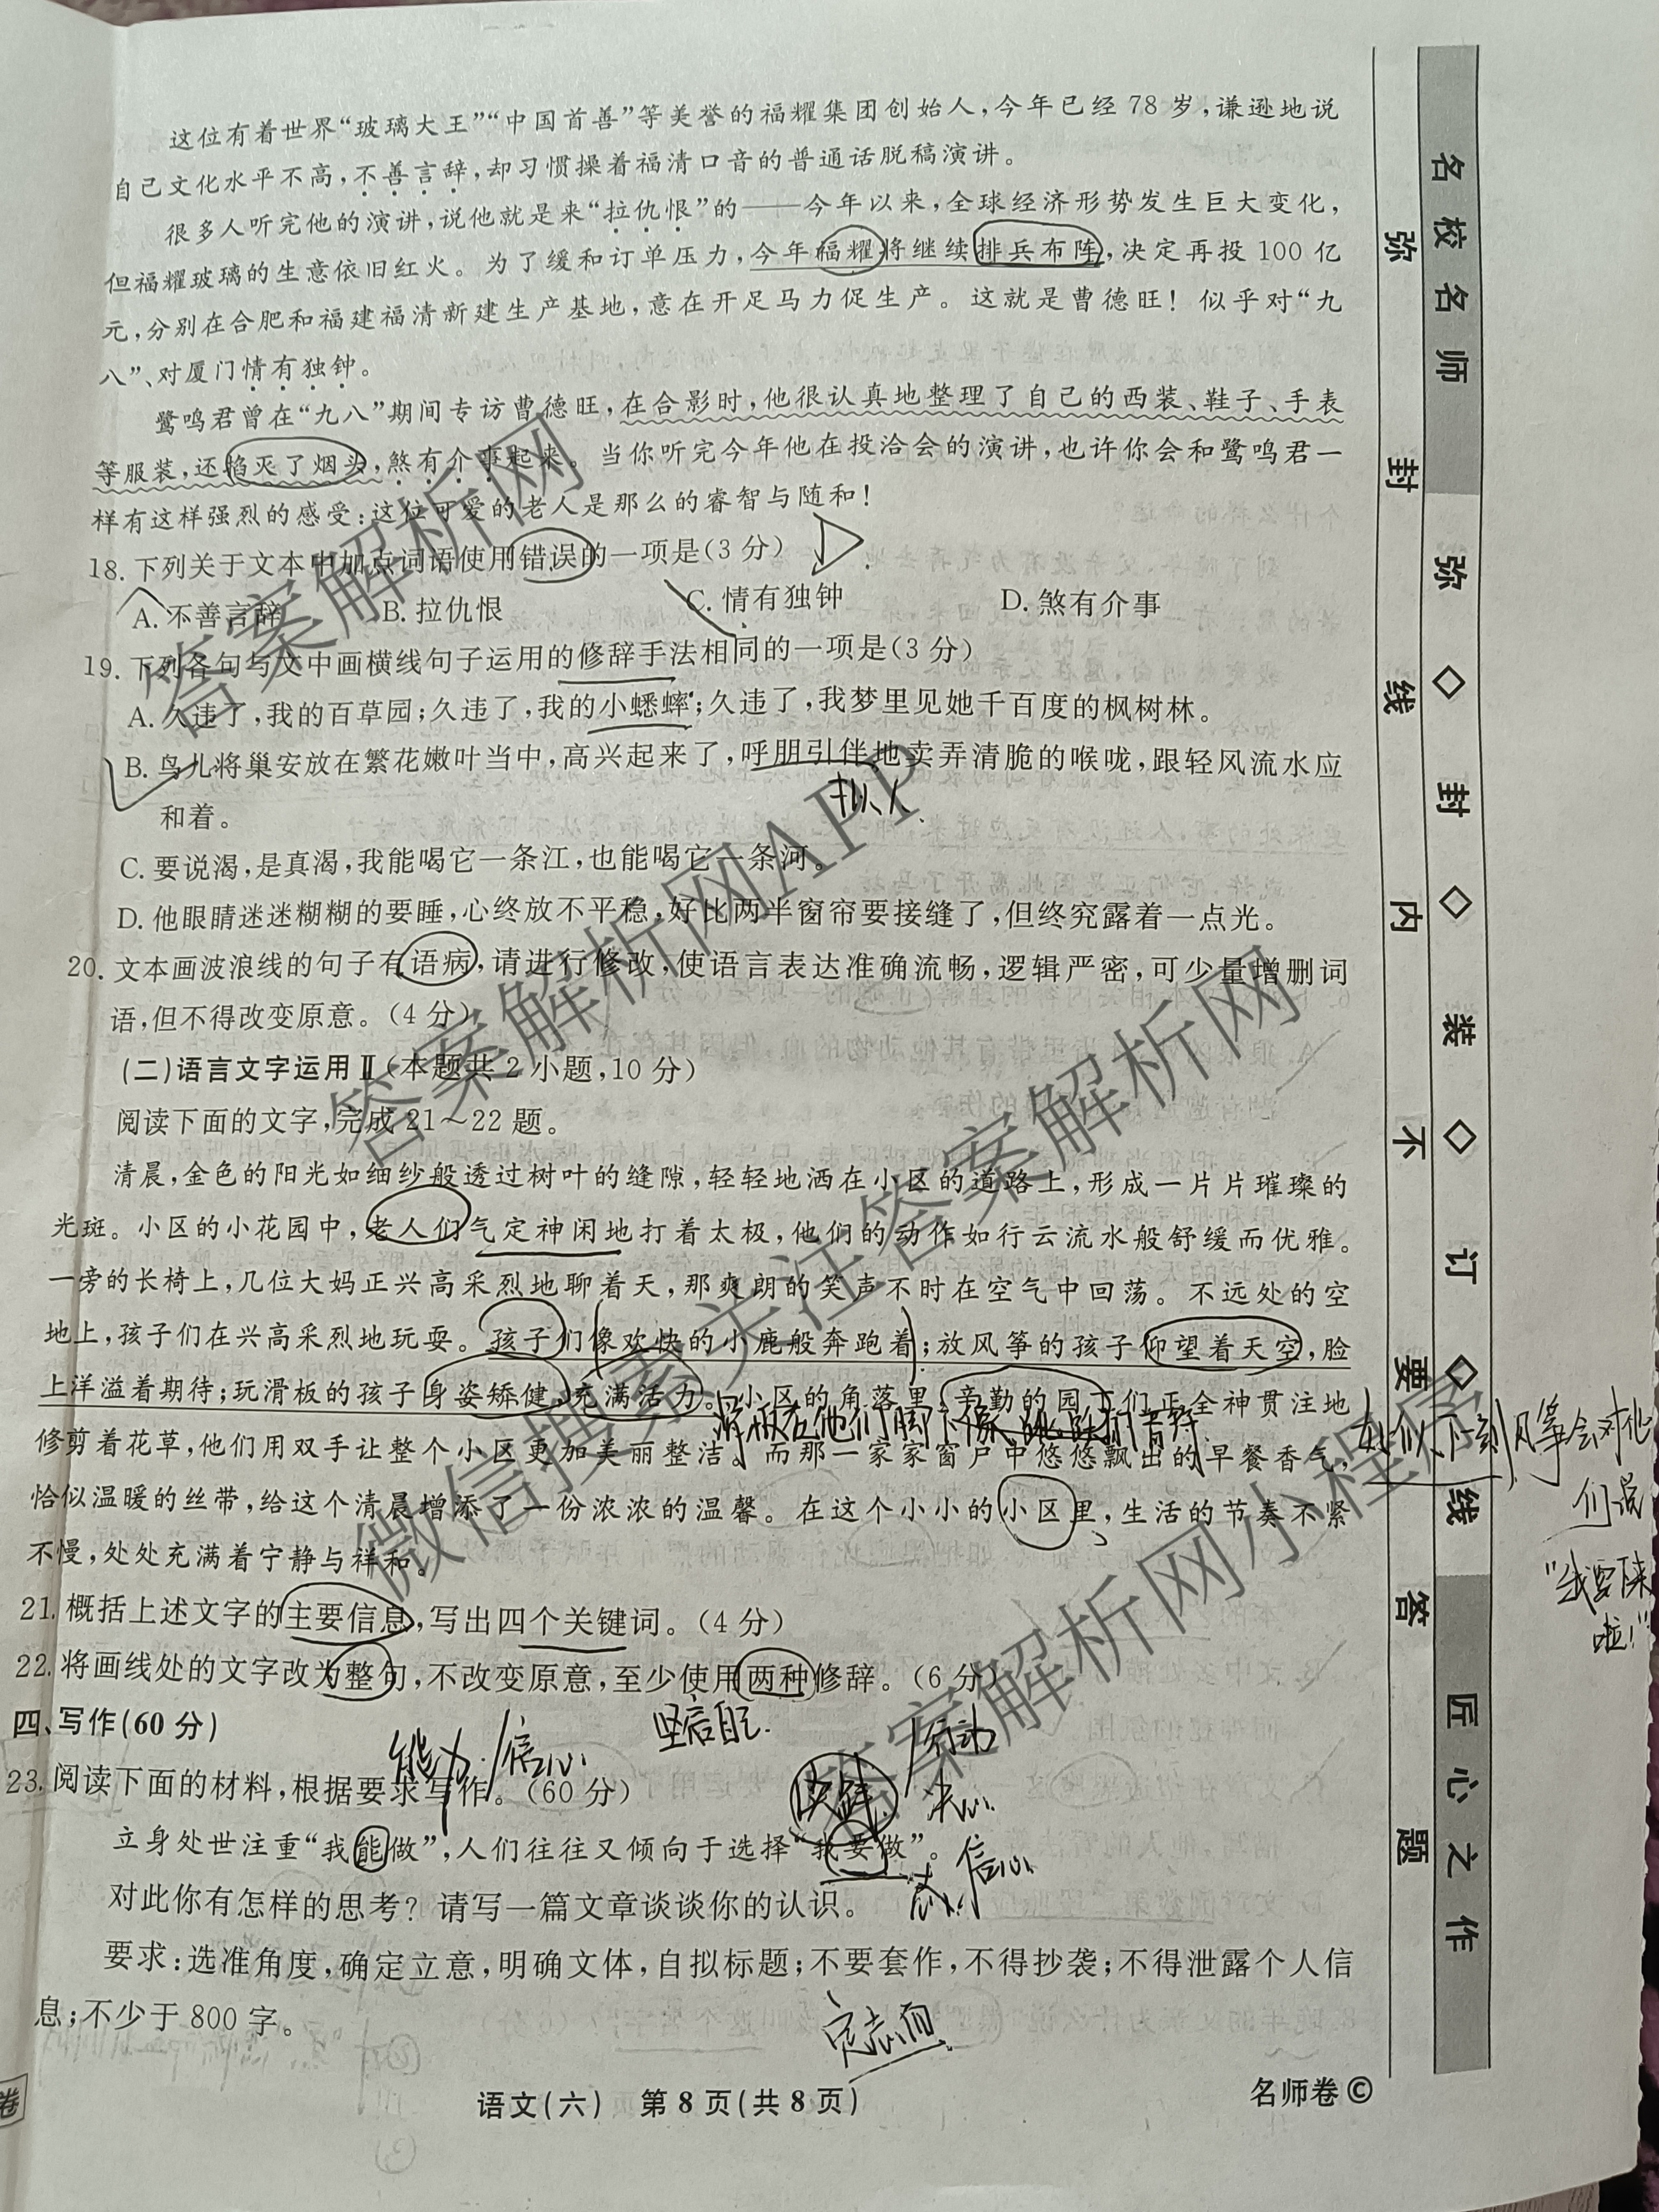 这位有着世界“玻璃大王”“中国首善”等美誉的福耀集团创始人，今年已经 78 岁，谦逊地说
自己文化水平不高，不善言辞，却习惯操着福清口音的普通话脱稿演讲。
很多人听完他的演讲，说他就是来“拉仇恨”的——今年以来，全球经济形势发生巨大变化，
但福耀玻璃的生意依旧红火。为了缓和订单压力，今年福耀将继续排兵布阵，决定再投 100 亿
元，分别在合肥和福建福清新建生产基地，意在开足马力促生产。这就是曹德旺！似乎对“九
八”、对厦门情有独钟。
鹭鸣君曾在“九八”期间专访曹德旺，在合影时，他很认真地整理了自己的西装、鞋子、手表
等服装，还掐灭了烟头，煞有介事起来。当你听完今年他在投洽会的演讲，也许你会和鹭鸣君一
样有这样强烈的感受：这位可爱的老人是那么的睿智与随和！
18. 下列关于文本中加点词语使用错误的一项是（3 分）
A. 不善言辞 B. 拉仇恨 C. 情有独钟 D. 煞有介事
19. 下列各句与文中画横线句子运用的修辞手法相同的一项是（3 分）
A. 久违了，我的百草园；久违了，我的小蟋蟀；久违了，我梦里见她千百度的枫树林。
B. 鸟儿将巢安放在繁花嫩叶当中，高兴起来了，呼朋引伴地卖弄清脆的喉咙，跟轻风流水应
和着。
拟人
C. 要说渴，是真渴，我能喝它一条江，也能喝它一条河。
D. 他眼睛迷迷糊糊的要睡，心终放不平稳，好比两半窗帘要接缝了，但终究露着一点光。
20. 文本画波浪线的句子有语病，请进行修改，使语言表达准确流畅，逻辑严密，可少量增删词
语，但不得改变原意。（4 分）
（二）语言文字运用Ⅱ（本题共 2 小题，10 分）
阅读下面的文字，完成 21～22 题。
清晨，金色的阳光如细纱般透过树叶的缝隙，轻轻地洒在小区的道路上，形成一片片璀璨的
光斑。小区的小花园中，老人们气定神闲地打着太极，他们的动作如行云流水般舒缓而优雅。
一旁的长椅上，几位大妈正兴高采烈地聊着天，那爽朗的笑声不时在空气中回荡。不远处的空
地上，孩子们在兴高采烈地玩耍。孩子们像欢快的小鹿般奔跑着；放风筝的孩子仰望着天空，脸
上洋溢着期待；玩滑板的孩子身姿矫健，充满活力。小区的角落里，辛勤的园丁们正全神贯注地
滑板在他们脚下像跳跃的音符
修剪着花草，他们用双手让整个小区更加美丽整洁。而那一家家窗户中悠悠飘出的早餐香气，
好似下一刻风筝会对他
们说
“我要下来
啦！”
恰似温暖的丝带，给这个清晨增添了一份浓浓的温馨。在这个小小的小区里，生活的节奏不紧
不慢，处处充满着宁静与祥和。
21. 概括上述文字的主要信息，写出四个关键词。（4 分）
22. 将画线处的文字改为整句，不改变原意，至少使用两种修辞。（6 分）
四、写作（60 分）
能力 信心 坚信自己 行动
23. 阅读下面的材料，根据要求写作。（60 分）
抉择 决心
立身处世注重“我能做”，人们往往又倾向于选择“我要做”。
信心
对此你有怎样的思考？请写一篇文章谈谈你的认识。
要求：选准角度，确定立意，明确文体，自拟标题；不要套作，不得抄袭；不得泄露个人信
息；不少于 800 字。
定志向
语文（六） 第 8 页（共 8 页） 名师卷©
卷
名校名师 弥◇封◇装◇订◇线 匠心之作
弥封线内不要答题
答案解析网
答案解析网APP
微信搜索关注答案解析网
答案解析网小程序